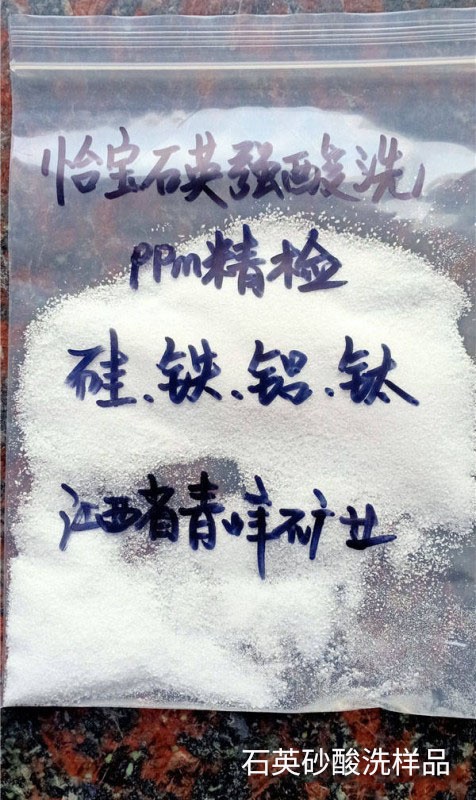 怡宝石英强酸洗
PPm精检
硅、铁、铝、钛
江西省青哖矿业
石英砂酸洗样品